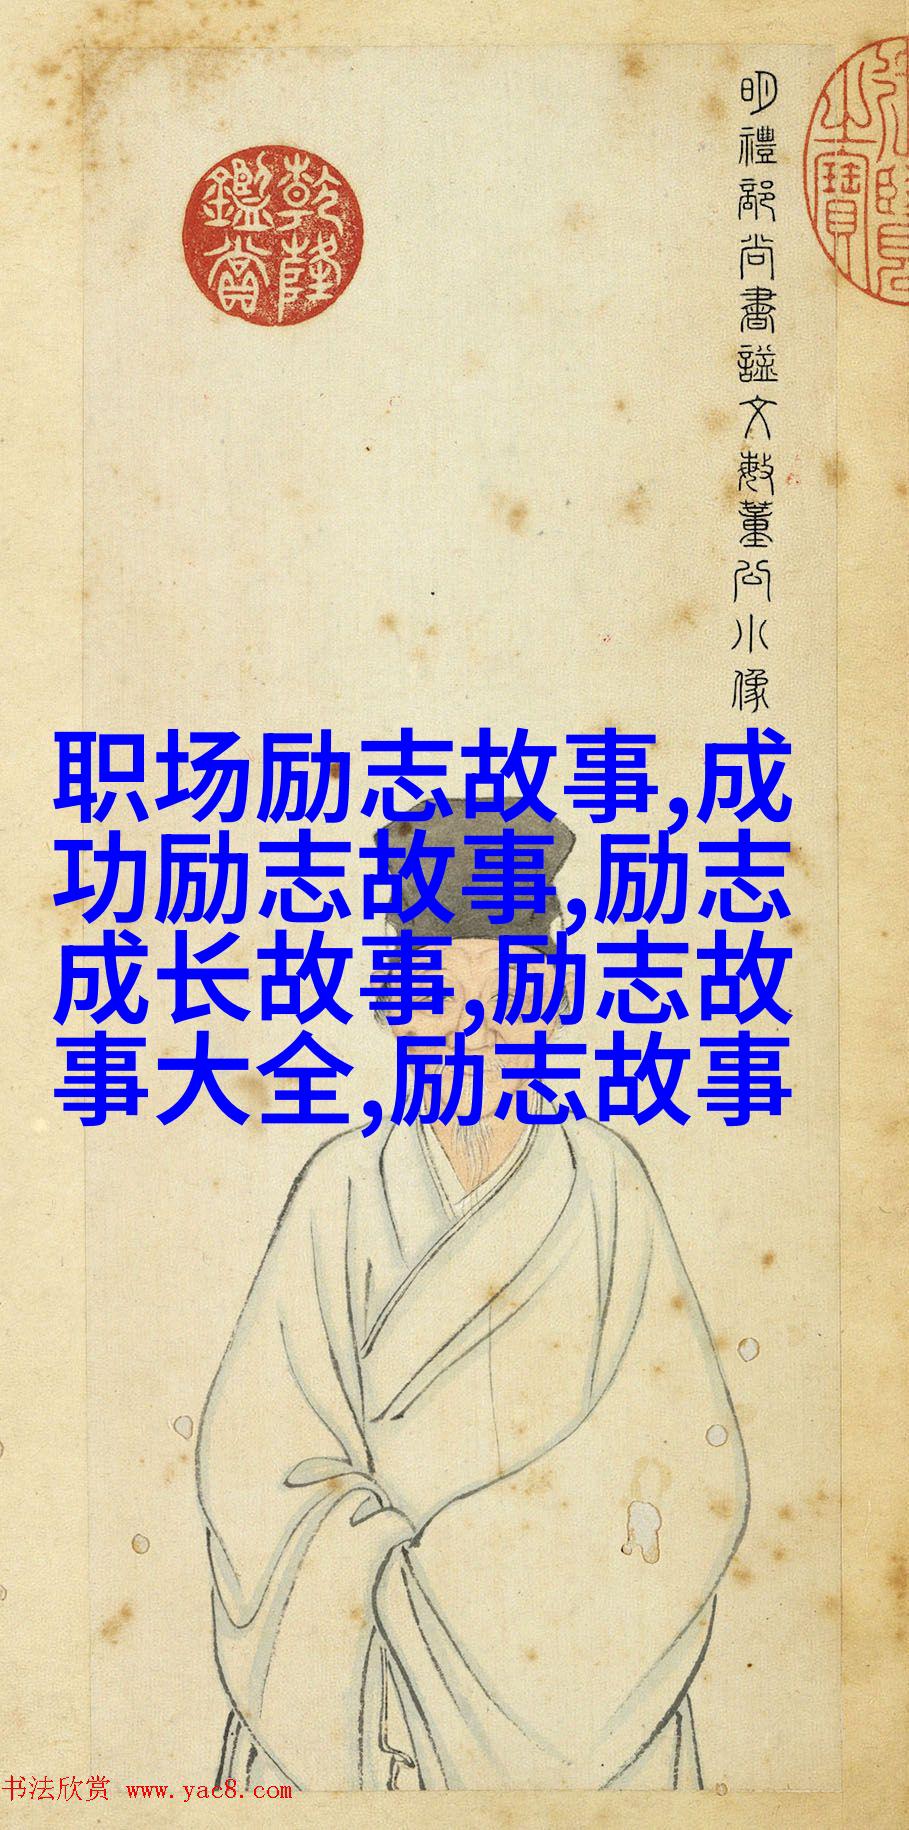 明禮部尚書謚文敏董公小像
乾隆
鑑賞
職场励志故事,成
功励志故事,励志
成长故事,励志故
事大全,励志故事
书法欣赏 www.yac8.com